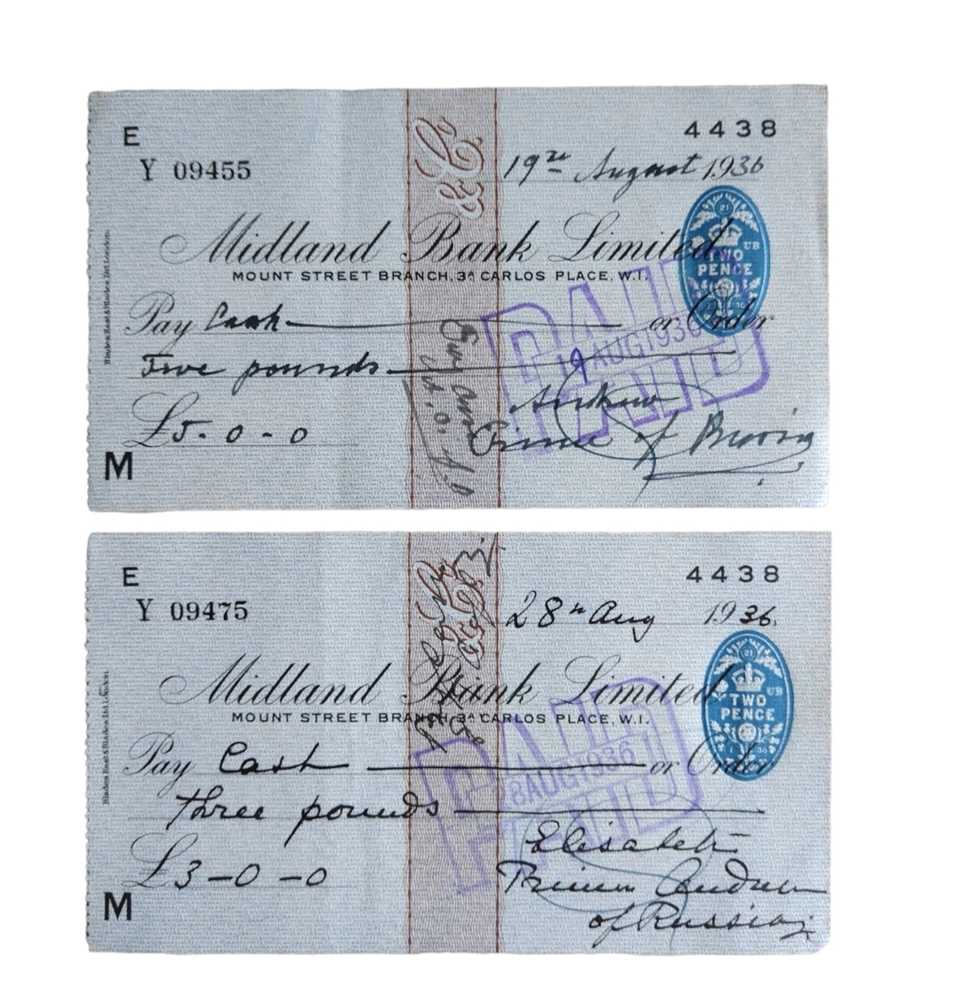 E
4438
Y 09455
19th August 1936
Midland Bank Limited
MOUNT STREET BRANCH, 3A CARLOS PLACE, W.1.
TWO PENCE
Pay Cash or Order
Five pounds
PAID
19 AUG 1936
PAID
£5-0-0
Andrew
Prince of Russia
M
& Co
E
4438
Y 09475
28th Aug 1936.
Midland Bank Limited
MOUNT STREET BRANCH, 3A CARLOS PLACE, W.1.
TWO PENCE
Pay Cash or Order
three pounds
PAID
8 AUG 1936
PAID
£3-0-0
Elisabeth
Princess Andrew
of Russia
M